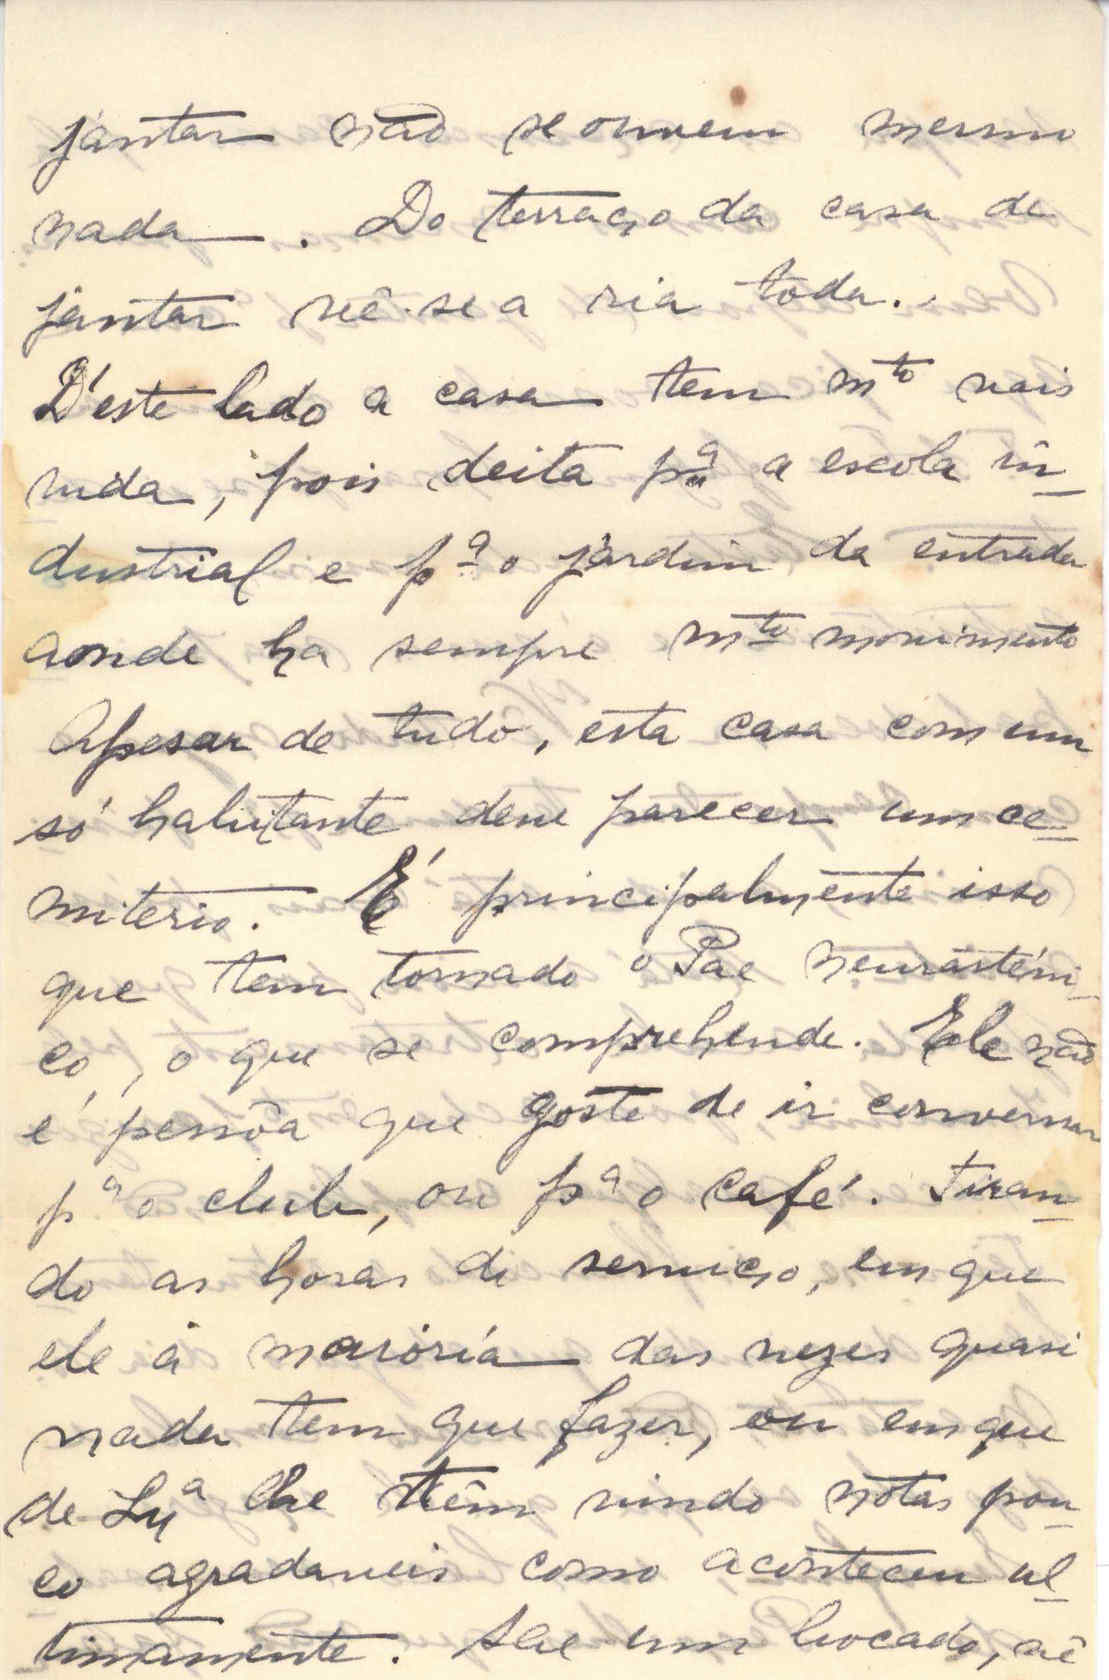 jantar não se ouvem mesmo
nada. Do terraço da casa de
jantar vê-se a ria toda.
D'éste lado a casa tem mto mais
vida, pois deita pª a escola in-
dustrial e pª o jardim da entrada
aonde ha sempre mto movimento
Apesar de tudo, esta casa com um
só habitante deve parecer um ce-
miterio. É principalmente isso
que tem tornado o Pae neurasténi-
co, o que se comprehende. Ele não
é pessôa que goste de ir conversar
pª o club, ou pª o café. Tiran-
do as horas de serviço, em que
ele á maioría das vezes quasi
nada tem que fazer, ou em que
de Lxª lhe têm vindo notas pou-
co agradaveis como aconteceu ul-
timamente. Sae um bocado, vê